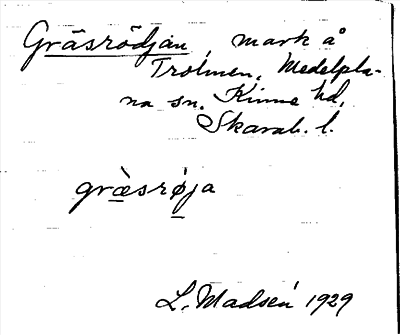 Gräsrödjan, mark å
Trolmen, Medelpla-
na sn. Kinne hd,
Skarab. l.
græsrøja
L. Madsén 1929